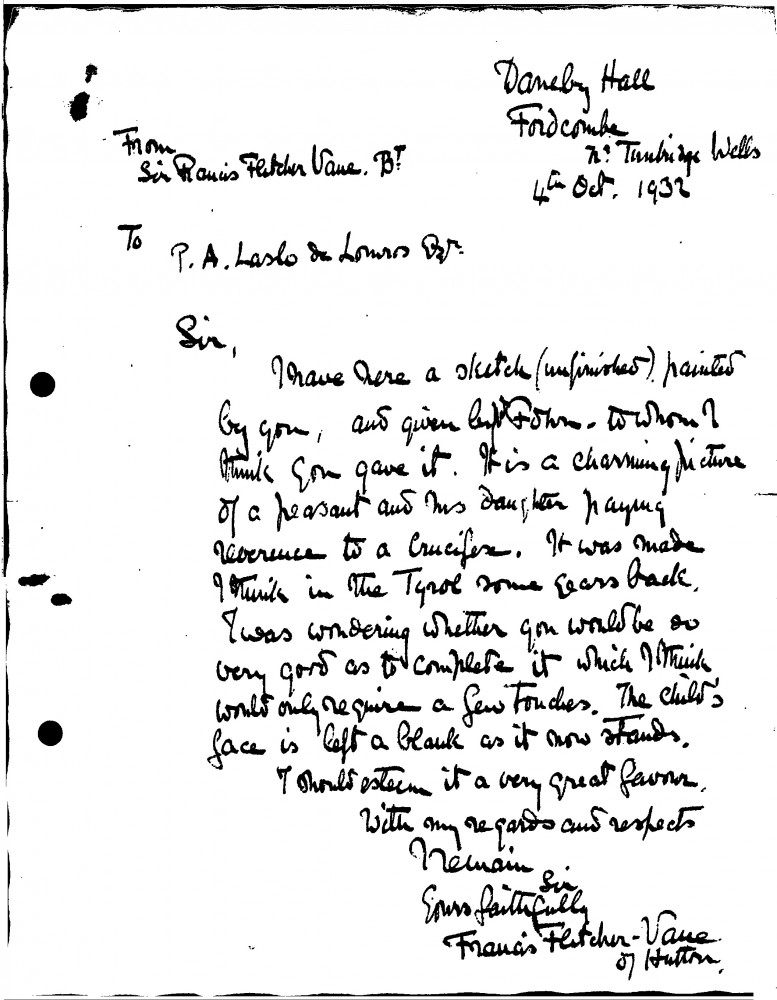 Daneby Hall
Fordcombe
Nr. Tunbridge Wells
4th Oct. 1932
From
Sir Francis Fletcher Vane. BT
To
P. A. Laslo de Lomros Esqr.
Sir,
I have here a sketch (unfinished) painted
by you, and given to whom I
think you gave it. It is a charming picture
of a peasant and his daughter paying
reverence to a Crucifix. It was made
I think in the Tyrol some years back.
I was wondering whether you would be so
very good as to complete it which I think
would only require a few touches. The child's
face is left a blank as it now stands.
I should esteem it a very great favour.
With my regards and respects
I remain
Sir
Yours faithfully
Francis Fletcher-Vane
of Hutton.